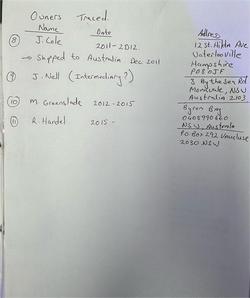 Owners Traced
Name Date Address
⑧ J. Cole 2011-2012 12 St. Hilda Ave
Waterlooville
→ Shipped to Australia Dec 2011 Hampshire
PO8 0JF
⑨ J. Nell (Intermediary?) 8 By the Sea Rd
Mona Vale, NSW
Australia 2103
⑩ M. Greenslade 2012-2015 Byron Bay
0408990660
NSW, Australia
⑪ R. Handel 2015 - PO Box 292 Vaucluse
2030 NSW